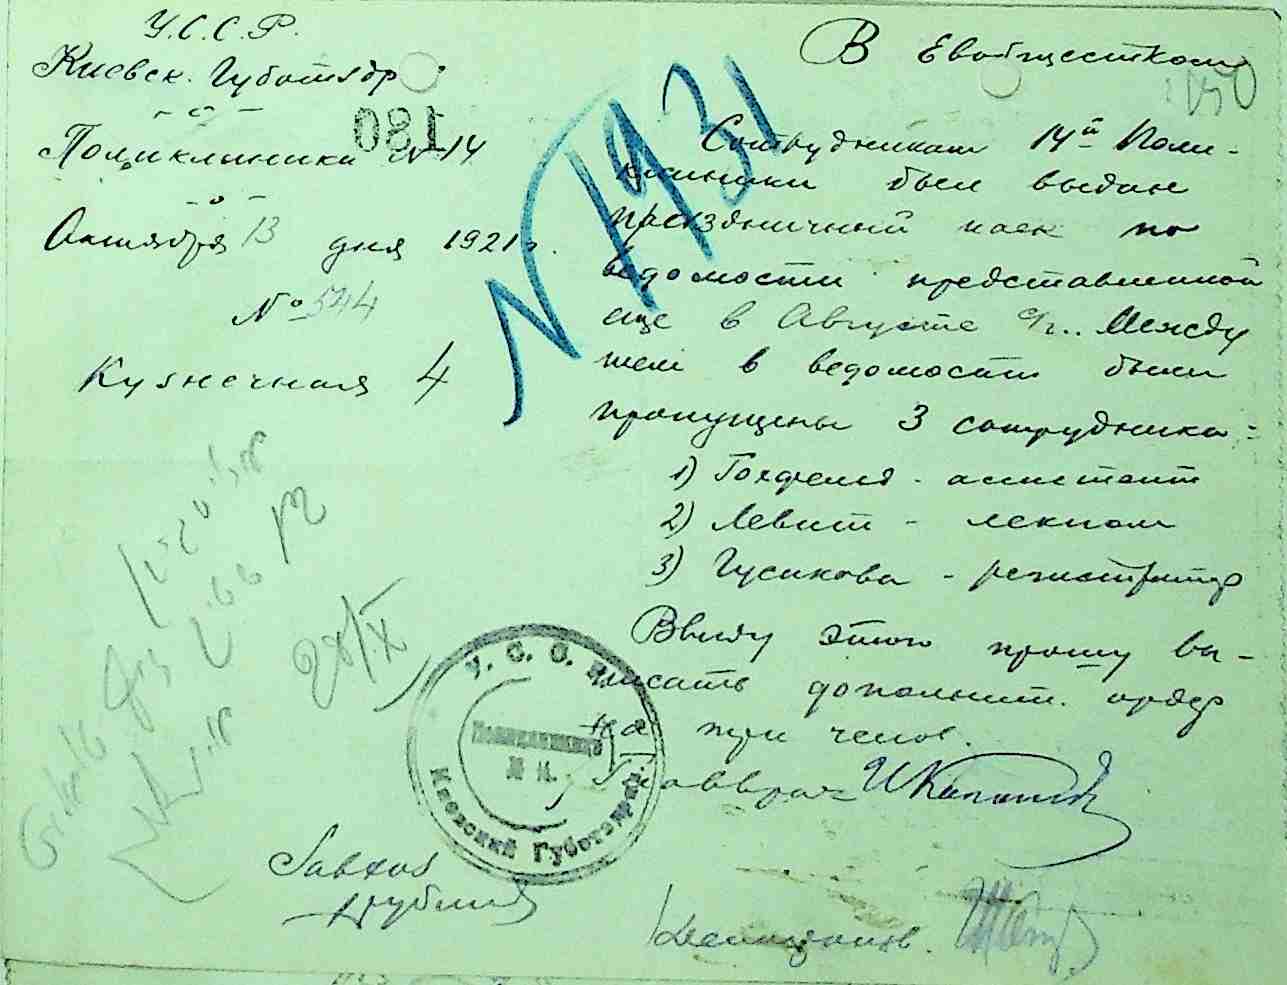 У.С.С.Р.
Киевск. Губотздр
Поликлиника № 14
180
Октября 13 дня 1921 г.
№ 544
Кузнечная 4
№ 1931
В Евобщестком
Сотрудникам 14й Поли-
клиники был выдан
праздничный паек по
ведомости представленной
еще в Августе с/г.. Между
тем в ведомости были
пропущены 3 сотрудника:
1) Гохфельд - ассистент
2) Левит - лекпом
3) Гусикова - регистратор
Ввиду этого прошу вы-
писать дополнит. ордер
на три челов.
Главврач
28/X
У. С. С. Р.
Поликлиника
№ 14.
Киевский Губотздрав
Завхоз